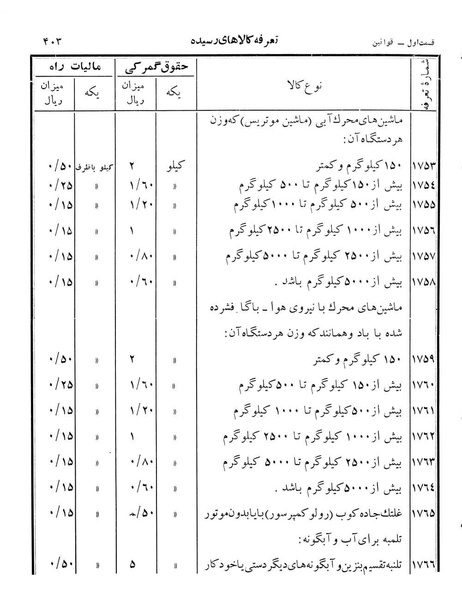 قسمت اول ــ قوانین
تعرفه کالاهای رسیده
۴۰۳
شمارهٔ تعرفه
نوع کالا
حقوق گمرکی
مالیات راه
یکه
میزان ریال
یکه
میزان ریال
ماشین‌های محرك آبی (ماشین موتریس) که وزن
هر دستگاه آن:
۱۷۵۳ ۱۵۰ کیلو گرم و کمتر کیلو ۲ کیلو باظرف ۰/۵۰
۱۷۵۴ بیش از ۱۵۰ کیلو گرم تا ۵۰۰ کیلو گرم » ۱/۶۰ » ۰/۲۵
۱۷۵۵ بیش از ۵۰۰ کیلو گرم تا ۱۰۰۰ کیلو گرم » ۱/۲۰ » ۰/۱۵
۱۷۵۶ بیش از ۱۰۰۰ کیلو گرم تا ۲۵۰۰ کیلو گرم » ۱ » ۰/۱۵
۱۷۵۷ بیش از ۲۵۰۰ کیلو گرم تا ۵۰۰۰ کیلو گرم » ۰/۸۰ » ۰/۱۵
۱۷۵۸ بیش از ۵۰۰۰ کیلو گرم باشد . » ۰/۶۰ » ۰/۱۵
ماشین‌های محرك با نیروی هوا ــ باگاز فشرده
شده یا باد و همانند که وزن هر دستگاه آن:
۱۷۵۹ ۱۵۰ کیلو گرم و کمتر » ۲ » ۰/۵۰
۱۷۶۰ بیش از ۱۵۰ کیلو گرم تا ۵۰۰ کیلو گرم » ۱/۶۰ » ۰/۲۵
۱۷۶۱ بیش از ۵۰۰ کیلو گرم تا ۱۰۰۰ کیلو گرم » ۱/۲۰ » ۰/۱۵
۱۷۶۲ بیش از ۱۰۰۰ کیلو گرم تا ۲۵۰۰ کیلو گرم » ۱ » ۰/۱۵
۱۷۶۳ بیش از ۲۵۰۰ کیلو گرم تا ۵۰۰۰ کیلو گرم » ۰/۸۰ » ۰/۱۵
۱۷۶۴ بیش از ۵۰۰۰ کیلو گرم باشد . » ۰/۶۰ » ۰/۱۵
۱۷۶۵ غلتك جاده کوب (رولو کمپرسور) با یا بدون موتور » /۵۰ » ۰/۱۵
تلمبه برای آب و آبگونه:
۱۷۶۶ تلنبه تقسیم بنزین و آبگونه های دیگر دستی یا خود کار » ۵ » ۰/۵۰